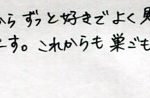 からずっと好きでよく見
です。これからも巣ごも